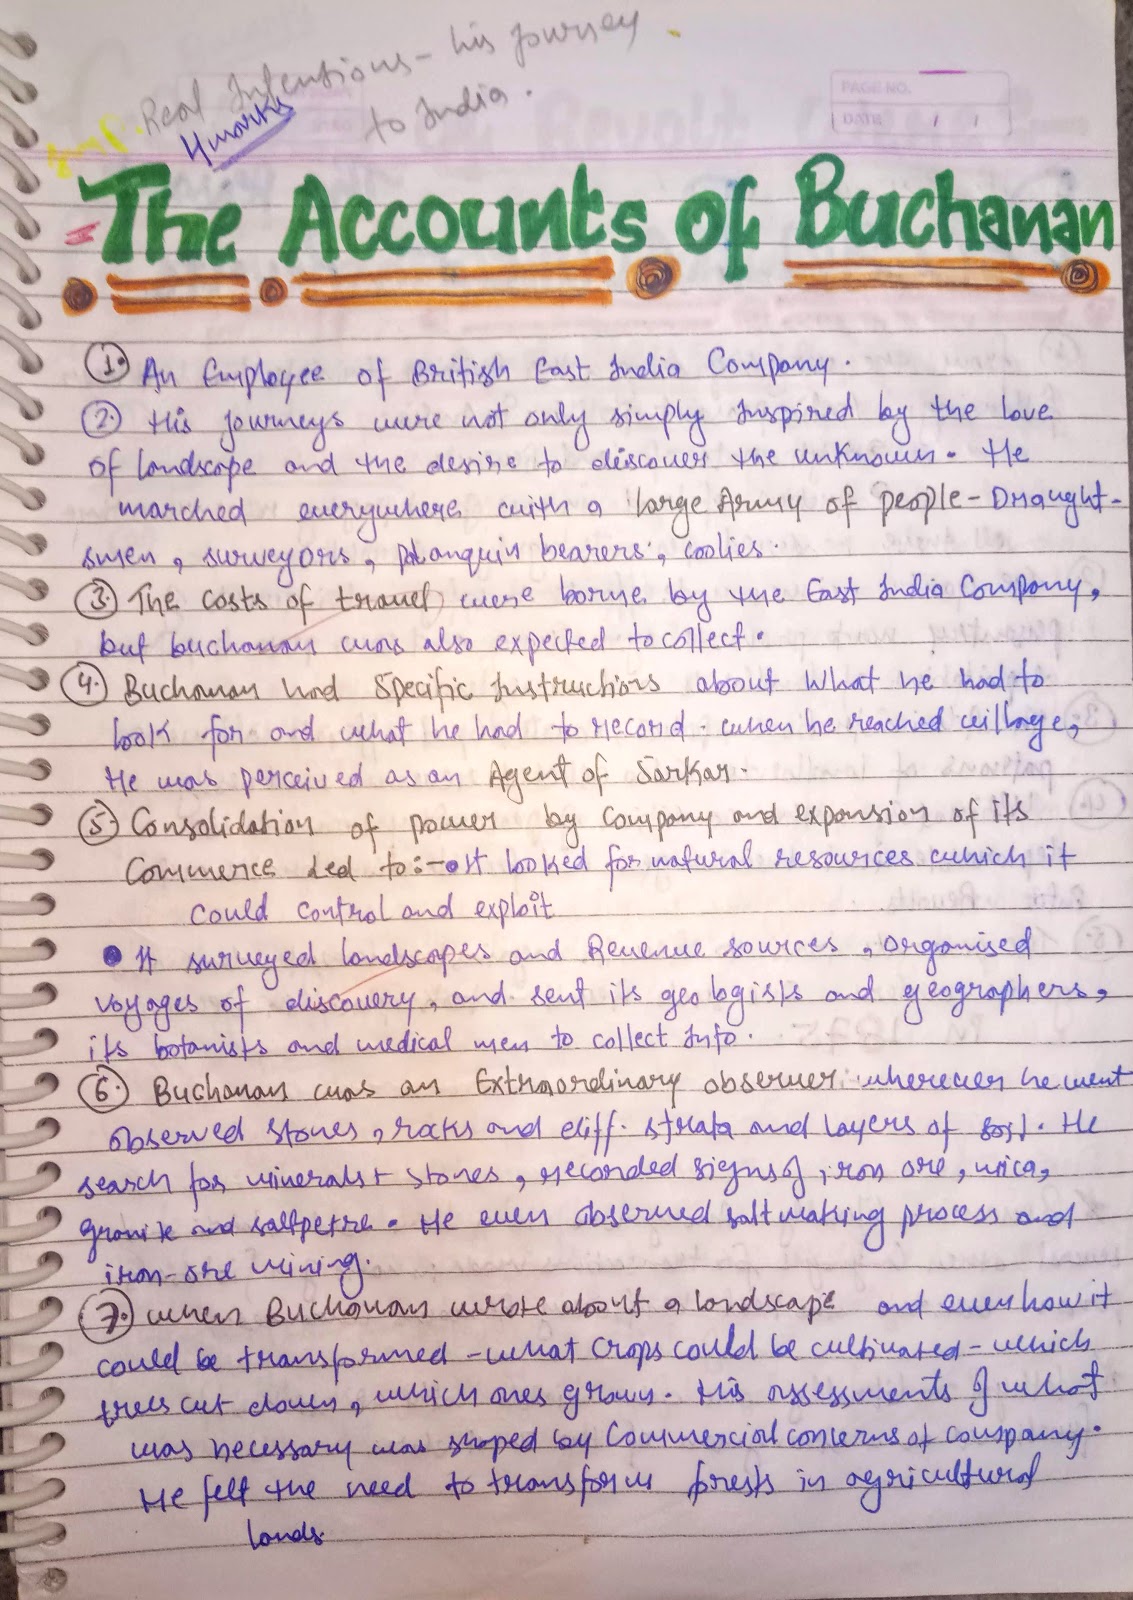 Real Intentions - his journey
to India.
Imp.
4marks
PAGE NO.
DATE
The Accounts of Buchanan
1. An Employee of British East India Company.
2. His journeys were not only simply Inspired by the love
of landscape and the desire to discover the unknown. He
marched everywhere with a large Army of people - Draught-
smen, surveyors, palanquin bearers, coolies.
3. The costs of travel were borne by the East India Company,
but buchanan was also expected to collect.
4. Buchanan had Specific Instructions about what he had to
look for and what he had to record. when he reached village,
He was perceived as an Agent of Sarkar.
5. Consolidation of power by Company and expansion of its
Commerce led to:- • It looked for natural resources which it
could control and exploit
• It surveyed landscapes and Revenue sources, organised
voyages of discovery, and sent its geologists and geographers,
its botanists and medical men to collect Info.
6. Buchanan was an Extraordinary observer. wherever he went
observed stones, rocks and cliff. strata and layers of soil. He
search for minerals + stones, recorded signs of, iron ore, mica,
granite and saltpetre. He even observed saltmaking process and
iron-ore mining.
7. when Buchanan wrote about a landscape and even how it
could be transformed - what crops could be cultivated - which
trees cut down, which ones grown. His assessments of what
was necessary was shaped by Commercial concerns of company.
He felt the need to transform forests in agricultural
lands.